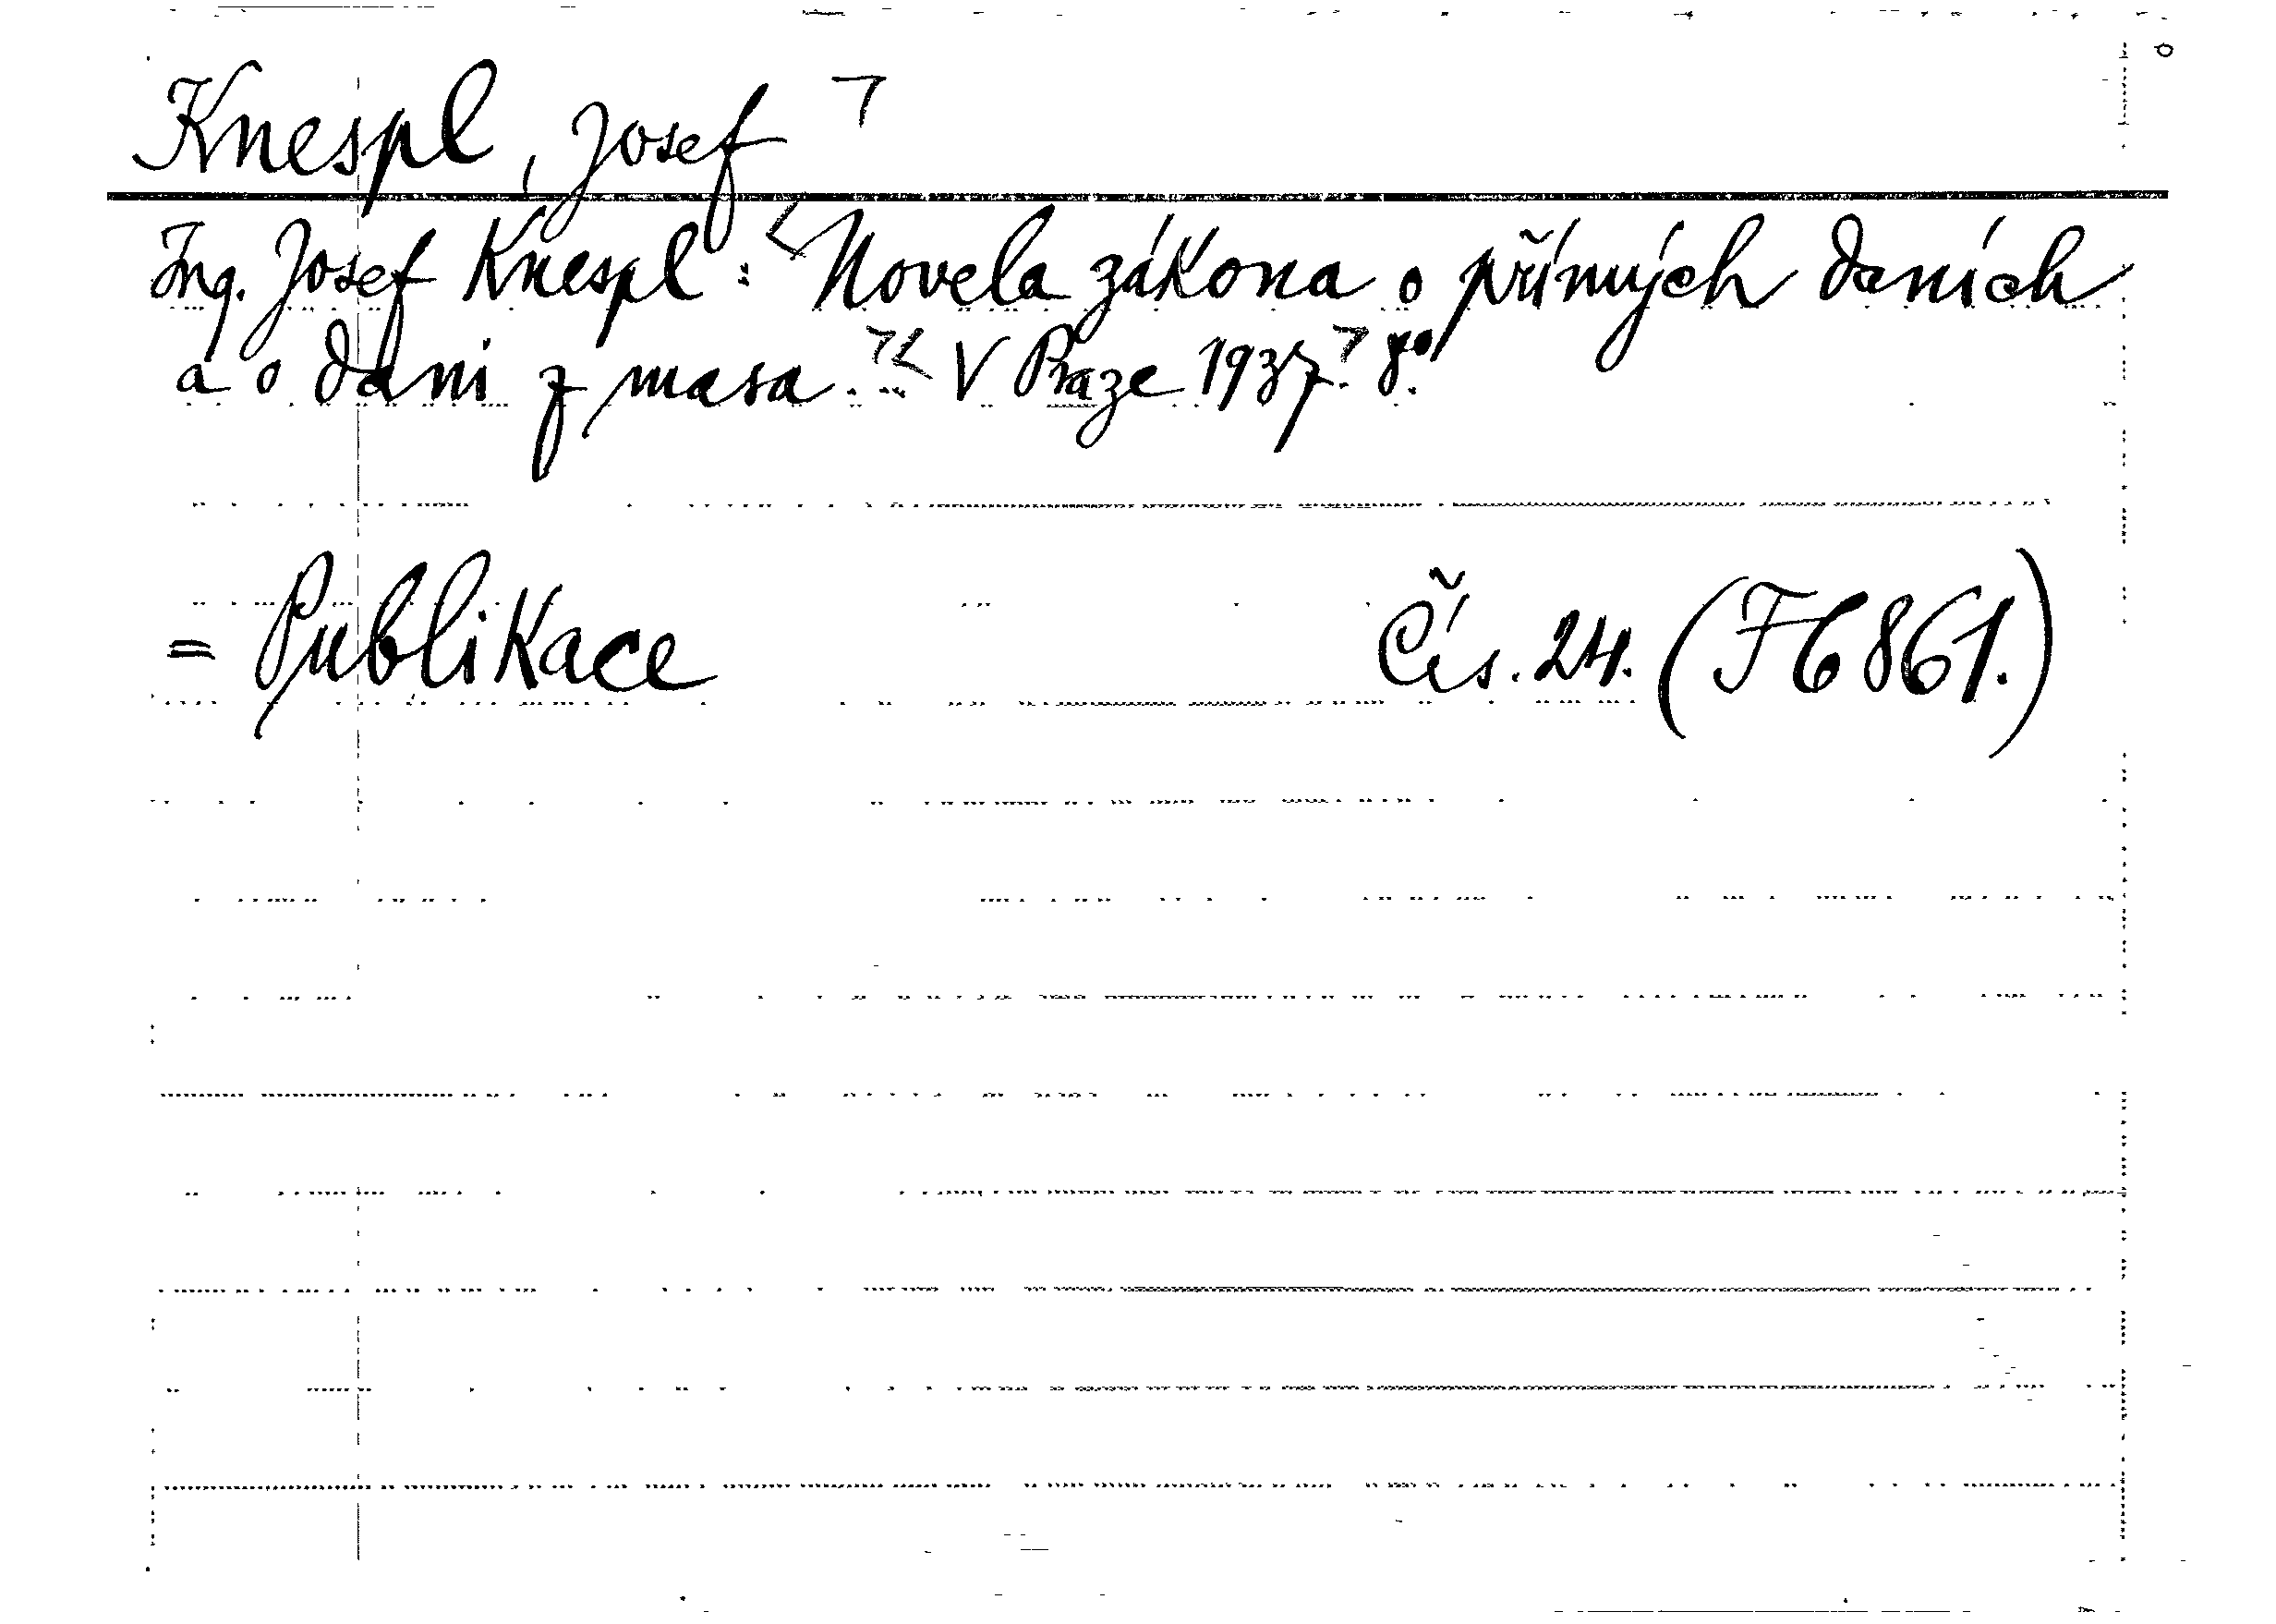 Knespl, Josef
Ing. Josef Knespl: Novela zákona o přímých daních
a o dani z masa. V Praze 1937. 8°.
= Publikace Čís. 24. (F6861.)